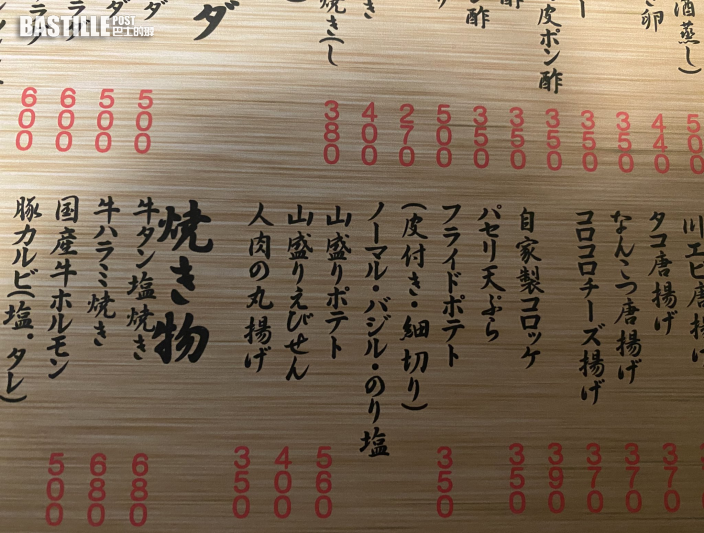 酒蒸し)
500
き卵
440
350
350
皮ポン酢
350
酢
350
酢
350
500
270
き
400
焼き(し
380
ダ
ダ
500
ダ
500
600
600
川エビ唐揚げ
タコ唐揚げ
370
なんこつ唐揚げ
370
コロコロチーズ揚げ
370
自家製コロッケ
390
パセリ天ぷら
350
フライドポテト
(皮付き・細切り)
ノーマル・バジル・のり塩
350
山盛りポテト
560
山盛りえびせん
400
人肉の丸揚げ
350
焼き物
牛タン塩焼き
680
牛ハラミ焼き
680
国産牛ホルモン
500
豚カルビ(塩・タレ)
BASTILLE POST 巴士的報